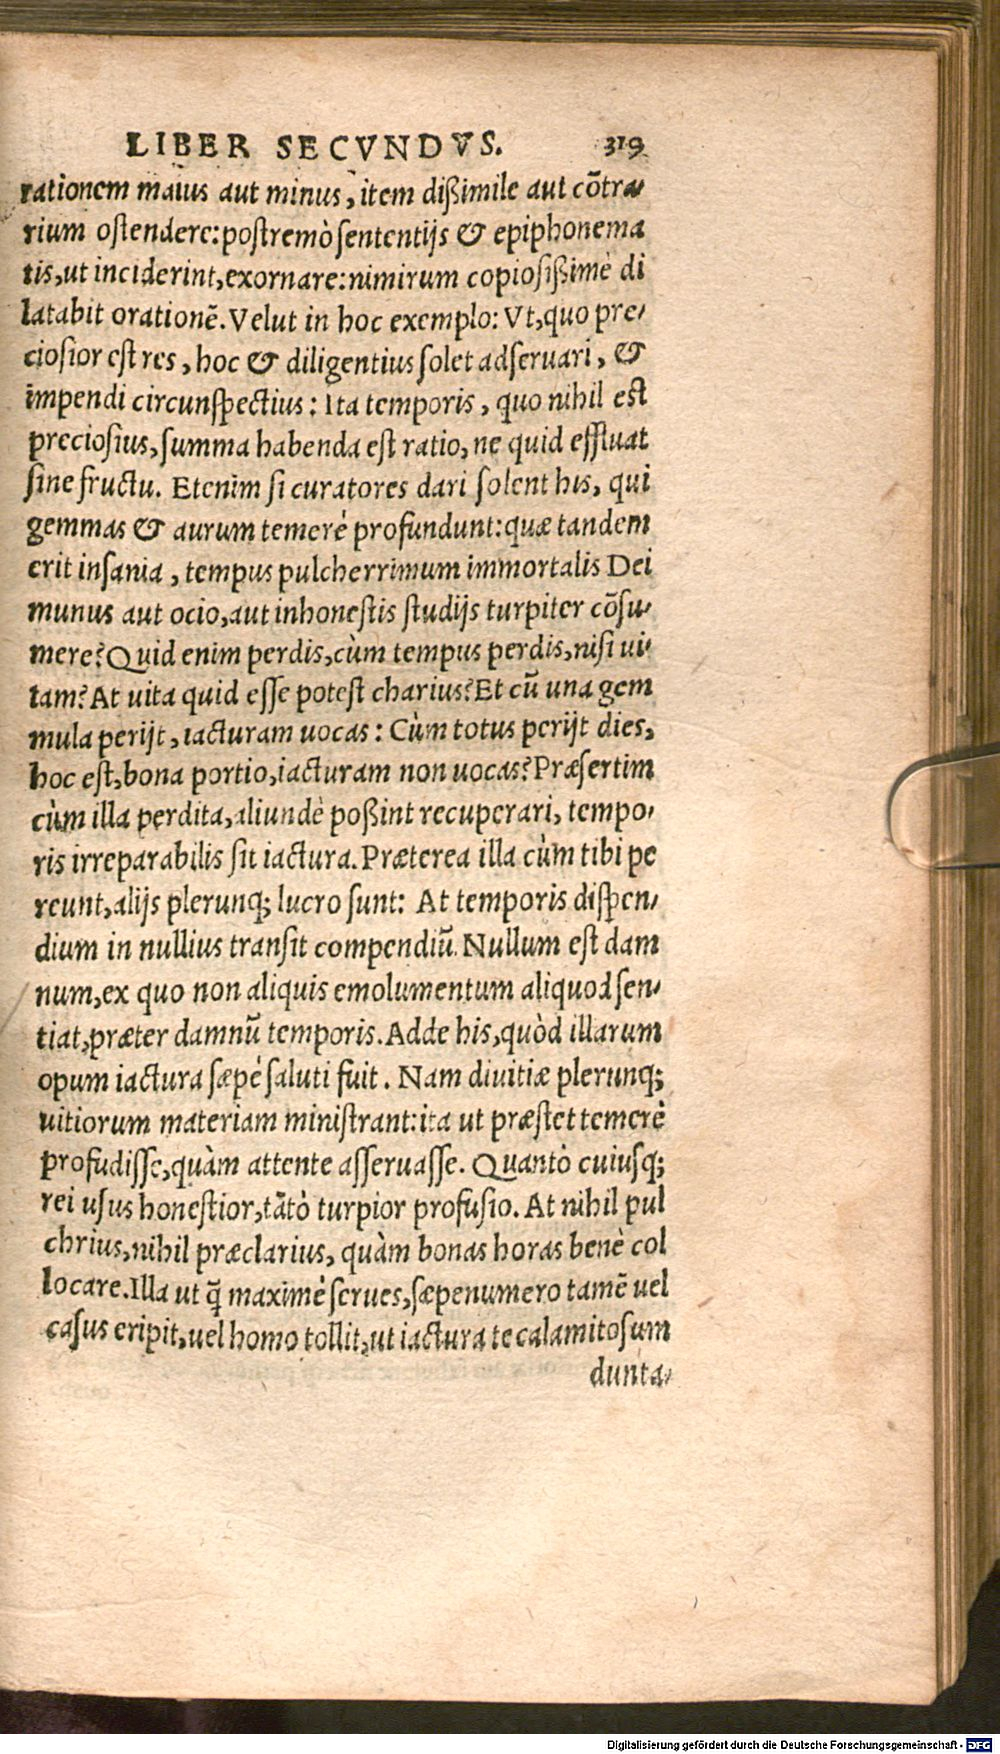 LIBER SECVNDVS. 319
rationem maius aut minus, item dißimile aut cõtra-
rium ostendere: postremò sententijs & epiphonema
tis, ut inciderint, exornare: nimirum copiosißimè di
latabit orationẽ. Velut in hoc exemplo: Vt, quo pre-
ciosior est res, hoc & diligentius solet adseruari, &
impendi circunspectius: Ita temporis, quo nihil est
preciosius, summa habenda est ratio, ne quid effluat
sine fructu. Etenim si curatores dari solent his, qui
gemmas & aurum temerè profundunt: quæ tandem
erit insania, tempus pulcherrimum immortalis Dei
munus aut ocio, aut inhonestis studijs turpiter cõsu-
mere? Quid enim perdis, cùm tempus perdis, nisi ui-
tam? At uita quid esse potest charius? Et cũ una gem
mula perijt, iacturam uocas: Cùm totus perijt dies,
hoc est, bona portio, iacturam non uocas? Præsertim
cùm illa perdita, aliundè poßint recuperari, tempo-
ris irreparabilis sit iactura. Præterea illa cùm tibi pe
reunt, alijs plerunq; lucro sunt: At temporis dispen-
dium in nullius transit compendiũ. Nullum est dam
num, ex quo non aliquis emolumentum aliquod sen-
tiat, præter damnũ temporis. Adde his, quòd illarum
opum iactura sæpè saluti fuit. Nam diuitiæ plerunq;
uitiorum materiam ministrant: ita ut præstet temerè
profudisse, quàm attente asseruasse. Quantò cuiusq;
rei usus honestior, tãtò turpior profusio. At nihil pul
chrius, nihil præclarius, quàm bonas horas benè col
locare. Illa ut q̃ maximè serues, sæpenumero tamẽ uel
casus eripit, uel homo tollit, ut iactura te calamitosum
dunta-
Digitalisierung gefördert durch die Deutsche Forschungsgemeinschaft - DFG